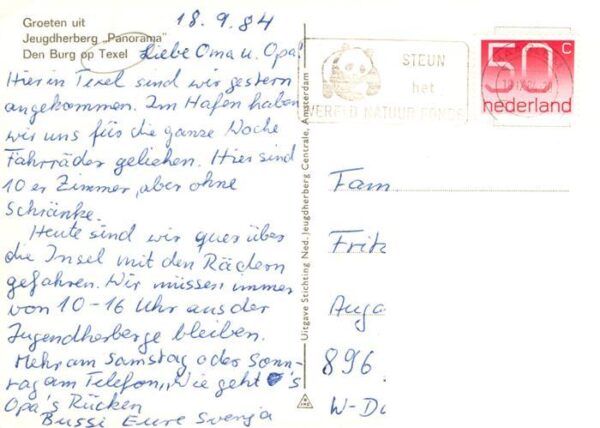 18.9.84
Groeten uit
Jeugdherberg „Panorama"
Den Burg op Texel
Liebe Oma u. Opa!
Hier in Texel sind wir gestern
angekommen. Im Hafen haben
wir uns für die ganze Woche
Fahrräder geliehen. Hier sind
10 er Zimmer, aber ohne
Schränke.
Heute sind wir quer über
die Insel mit den Rädern
gefahren. Wir müssen immer
von 10-16 Uhr aus der
Jugendherberge bleiben.
Mehr am Samstag oder Sonn-
tag am Telefon, „Wie geht's
Opa's Rücken
Bussi Eure Svenja
Uitgave Stichting Ned. Jeugdherberg Centrale, Amsterdam
STEUN
het
WERELD NATUUR FONDS
50 C
nederland
Fam
Fritz
Auga
896
W-Du